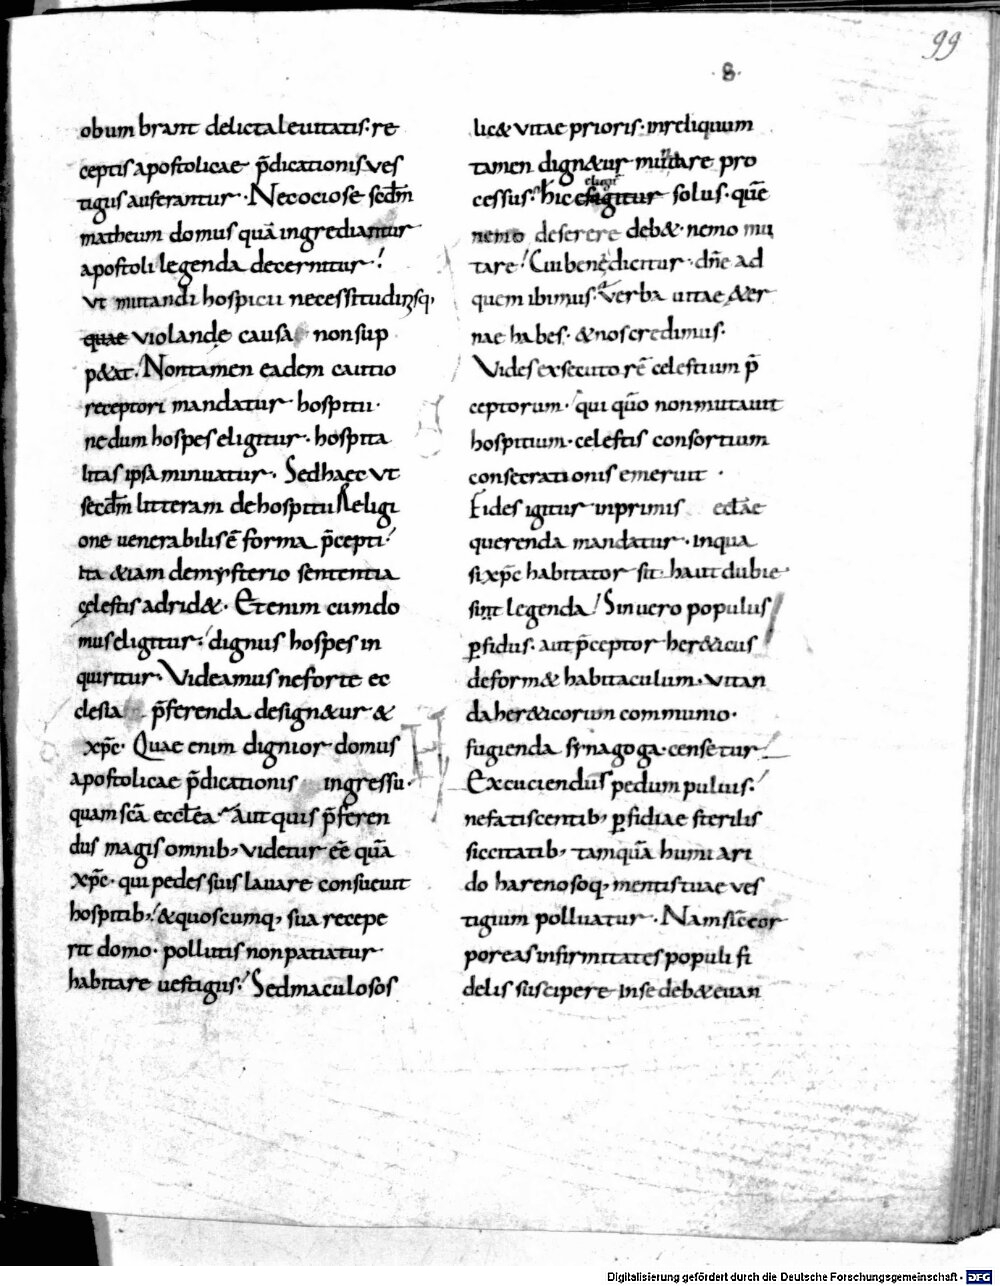 99
·8·
obumbrant delicta leuitatis· re
ceptis apostolicae p̄dicationis ves
tigiis auferantur· Nec ociose secd̄m
matheum domus quā ingrediantur
apostoli legenda decernitur!
vt mutandi hospicii necessitudinisq,
quae violande causa non sup
p&at! Non tamen eadem cautio
receptori mandatur hospitii·
ne dum hospes eligitur· hospita
litas ipsa minuatur· Sed haec vt
secd̄m litteram de hospitii Religi
one uenerabilis ē forma p̄cepti!
ita &iam de mysterio sententia
cęlestis adrid&· Etenim cum do
mus eligitur! dignus hospes in
quiritur· Videamus ne forte ec
clesia p̄ferenda design&ur &
xp̄c· Quae enim dignior domus
apostolicae p̄dicationis ingressu·
quam scā eccl̄ea· Aut quis p̄feren
dus magis omnib, videtur eē quā
xp̄c· qui pedes suis lauare consueuit
hospitib,! & quoscumq, sua recepe
rit domo· pollutis non patiatur
habitare uestigiis! Sed maculosos
lic& vitae prioris· in reliquum
tamen dign&ur mutare pro
cessus! hic eligitur solus· quē
nemo deserere deb&· nemo mu
tare! Cui bene dicitur· dn̄e ad
quem ibimus· verba uitae &er
nae habes· & nos credimus·
Vides exsecutorē celestium p̄
ceptorum· qui quō non mutauit
hospitium· celestis consortium
consecrationis emeruit·
Fides igitur inprimis eclāe
querenda mandatur· in qua
si xp̄c habitator sit haut dubie
sint legenda! Sin uero populus
p̄fidus· aut p̄ceptor her&icus
deform& habitaculum· vitan
da her&icorum communio·
fugienda synagoga censetur!
Excuciendus pedum puluis!
ne fatiscentib, p̄fidiae sterilis
siccitatib, tamquā humi ari
do harenosoq, mentis tuae ves
tigium polluatur· Nam sic̄ cor
poreas infirmitates populi fi
delis suscipere in se deb& euan
Digitalisierung gefördert durch die Deutsche Forschungsgemeinschaft - DFG